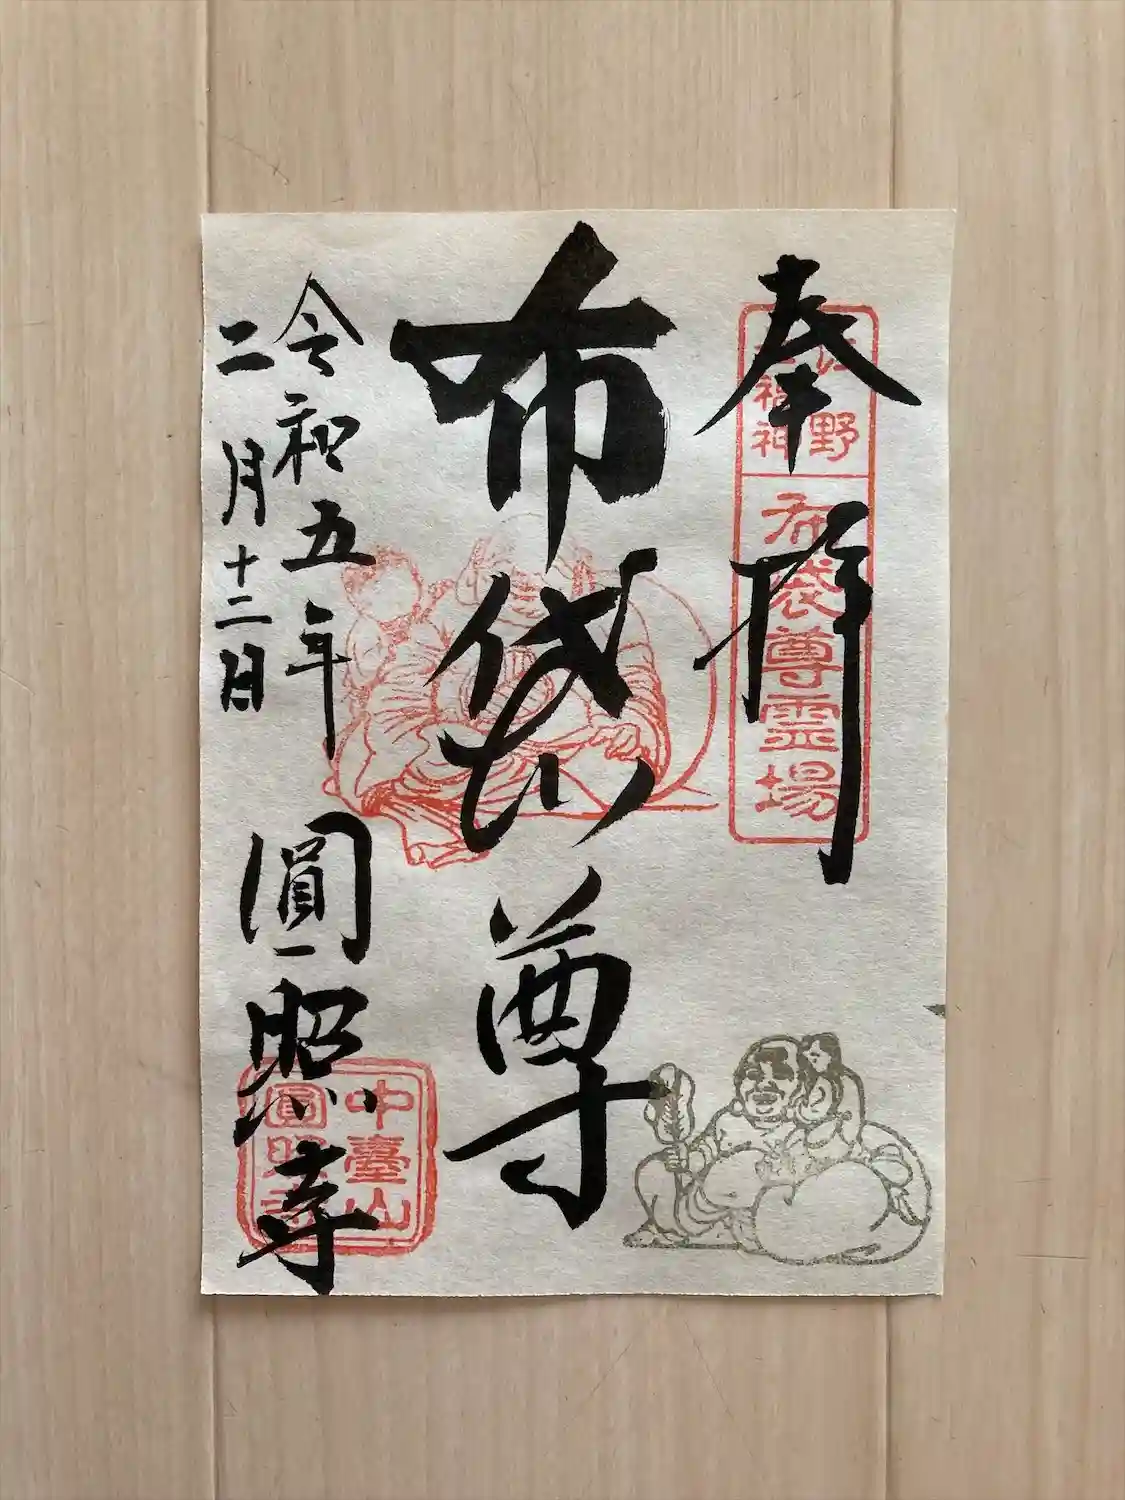 奉拝
佐野
七福神
布袋尊霊場
布袋尊
令和五年
二月十二日
圓照寺
中臺山
圓照寺